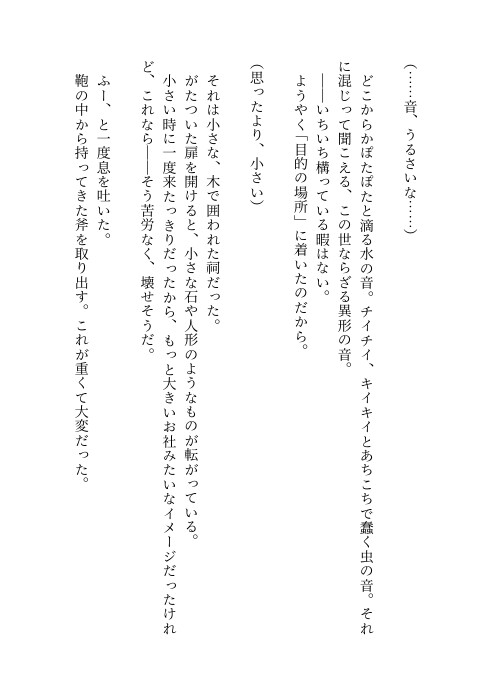 (……音、うるさいな……)
どこからかぽたぽたと滴る水の音。チイチイ、キイキイとあちこちで蠢く虫の音。それ
に混じって聞こえる、この世ならざる異形の音。
――いちいち構っている暇はない。
ようやく「目的の場所」に着いたのだから。
(思ったより、小さい)
それは小さな、木で囲われた祠だった。
がたついた扉を開けると、小さな石や人形のようなものが転がっている。
小さい時に一度来たっきりだったから、もっと大きいお社みたいなイメージだったけれ
ど、これなら――そう苦労なく、壊せそうだ。
ふー、と一度息を吐いた。
鞄の中から持ってきた斧を取り出す。これが重くて大変だった。